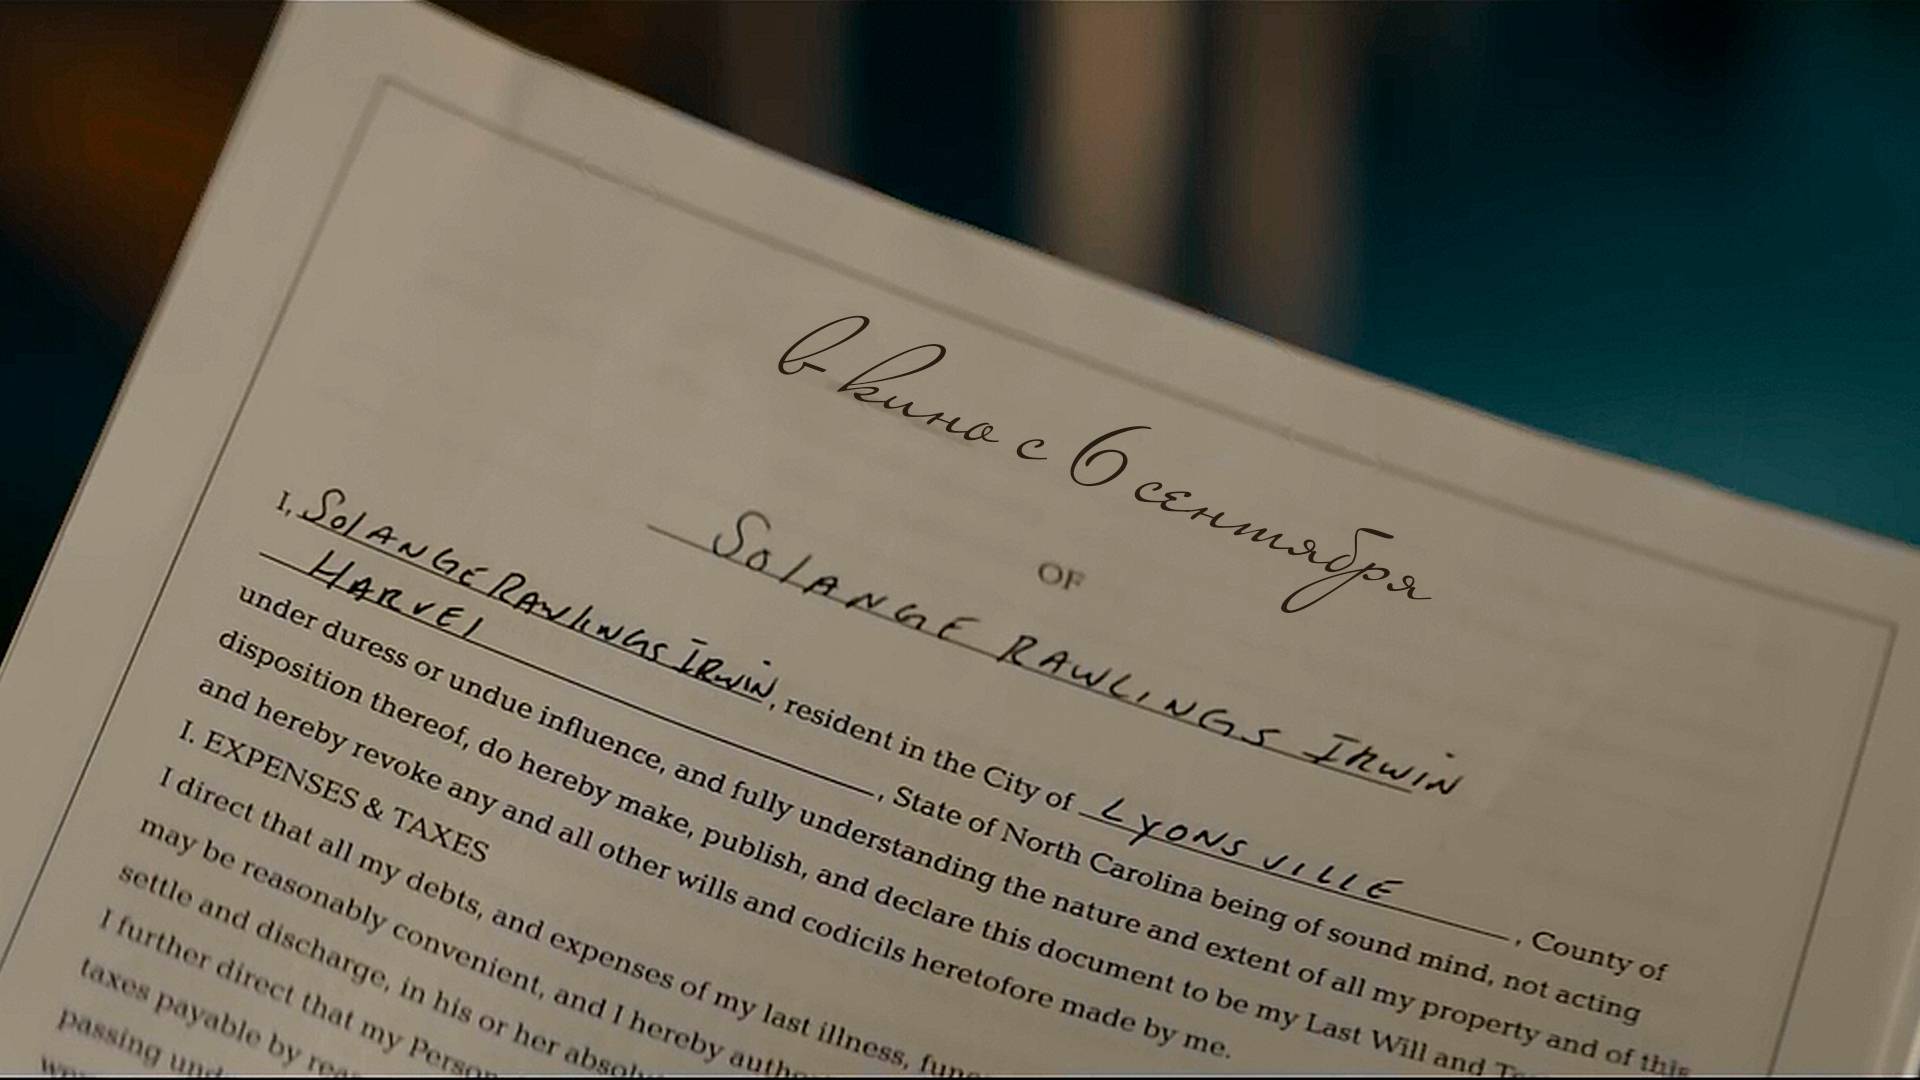 в кино с 6 сентября
OF
SOLANGE RAWLINGS IRWIN
I, SOLANGE RAWLINGS IRWIN, resident in the City of LYONSVILLE, County of
HARVEL, State of North Carolina being of sound mind, not acting
under duress or undue influence, and fully understanding the nature and extent of all my property and of this
disposition thereof, do hereby make, publish, and declare this document to be my Last Will and
and hereby revoke any and all other wills and codicils heretofore made by me.
I. EXPENSES & TAXES
I direct that all my debts, and expenses of my last illness,
may be reasonably convenient, and I hereby
settle and discharge, in his or her
I further direct that my
taxes payable by
passing